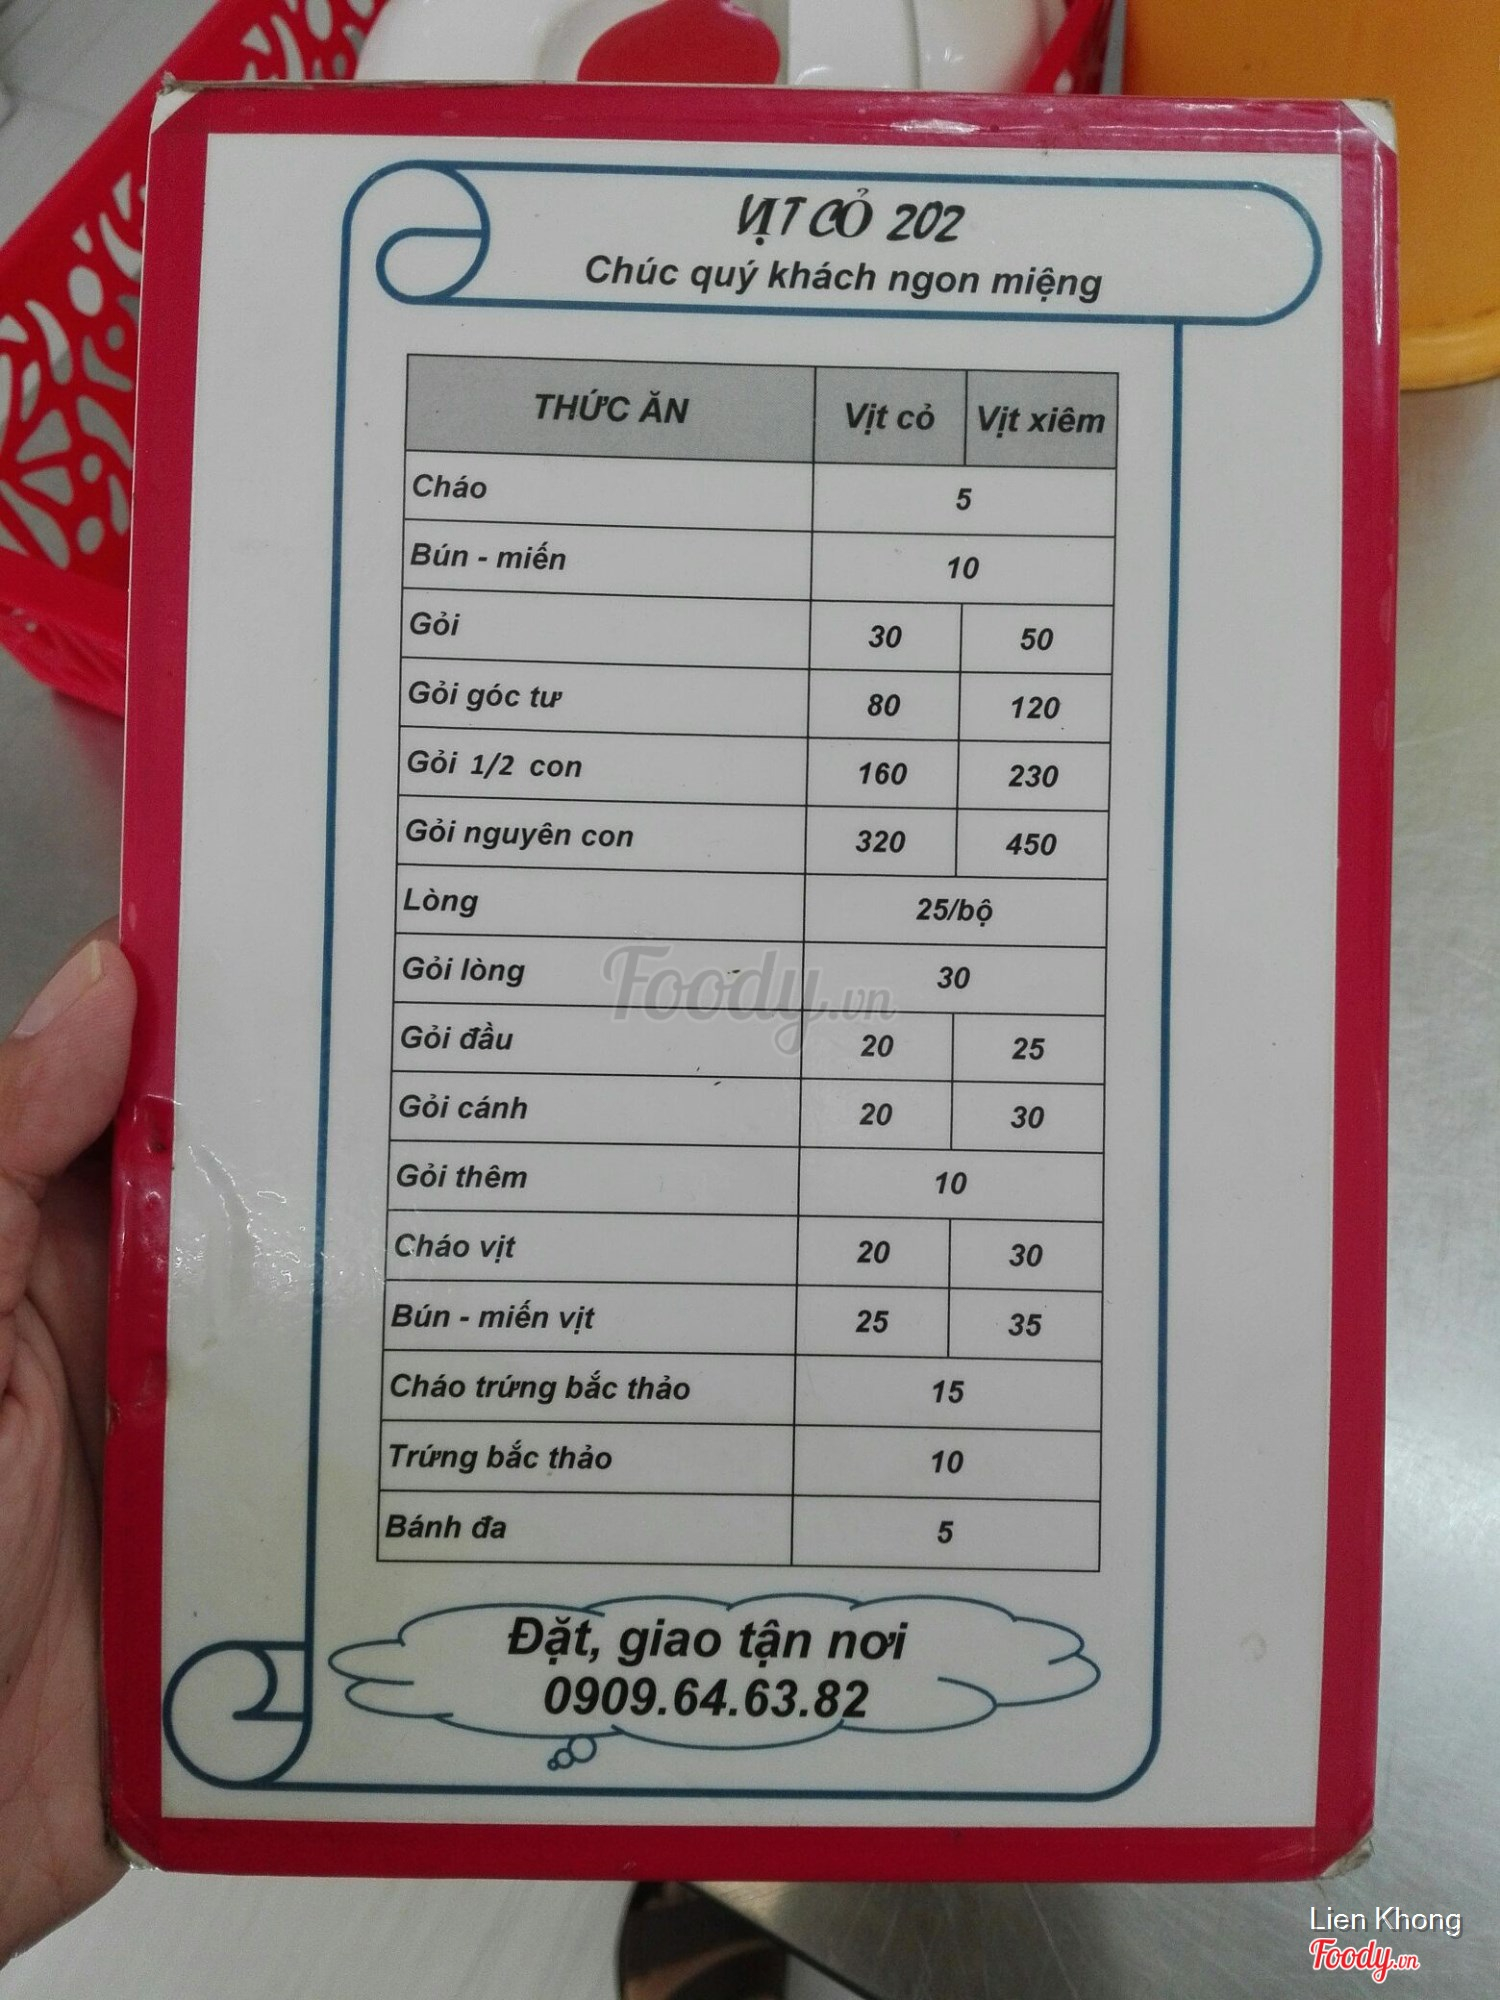 VỊT CỎ 202
Chúc quý khách ngon miệng
THỨC ĂN Vịt cỏ Vịt xiêm
Cháo 5
Bún - miến 10
Gỏi 30 50
Gỏi góc tư 80 120
Gỏi 1/2 con 160 230
Gỏi nguyên con 320 450
Lòng 25/bộ
Gỏi lòng 30
Foody.vn
Gỏi đầu 20 25
Gỏi cánh 20 30
Gỏi thêm 10
Cháo vịt 20 30
Bún - miến vịt 25 35
Cháo trứng bắc thảo 15
Trứng bắc thảo 10
Bánh đa 5
Đặt, giao tận nơi
0909.64.63.82
Lien Khong
Foody.vn